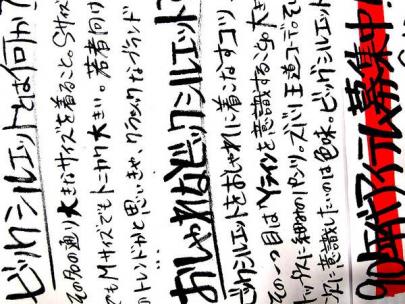 ビックシルエットとは何か?
その名の通り大きなサイズを着ること。Sサイズ
でもMサイズでもトニカク大きい。若者向け
のトレンドかと思いきや、クラシックなブランド
...
おしゃれなビックシルエット
ビックシルエットをおしゃれに着こなすコツ
その一つ目はYラインを意識すること。大き
トップスに細めのパンツ。ズバリ王道コーデ。そ
次に意識したいのは色味。ビックシルエット
90年代アイテム募集中!